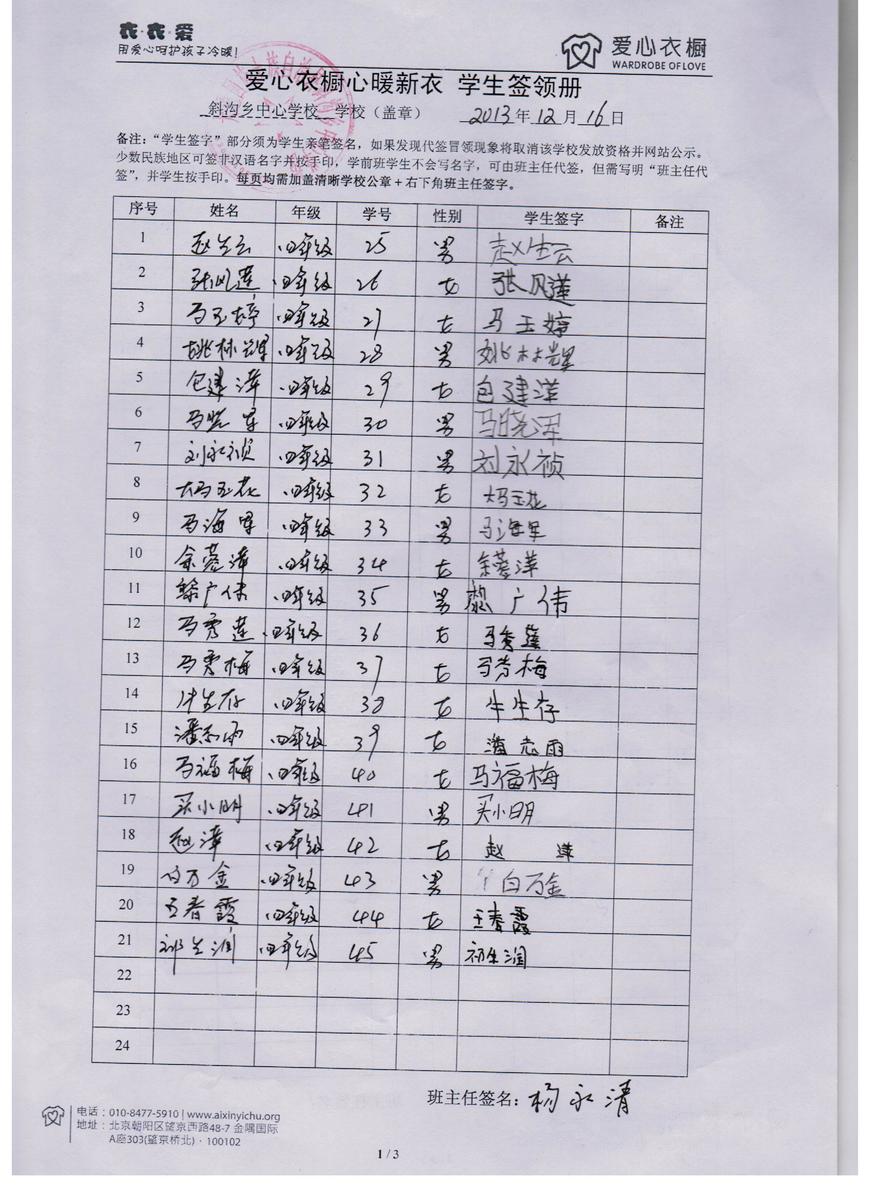 衣·衣·爱
用爱心呵护孩子冷暖!
爱心衣橱
WARDROBE OF LOVE
爱心衣橱心暖新衣 学生签领册
斜沟乡中心学校 学校（盖章） 2013年12月16日
备注：“学生签字”部分须为学生亲笔签名，如果发现代签冒领现象将取消该学校发放资格并网站公示。
少数民族地区可签非汉语名字并按手印，学前班学生不会写名字，可由班主任代签，但需写明“班主任代
签”，并学生按手印。每页均需加盖清晰学校公章+右下角班主任签字。
序号 姓名 年级 学号 性别 学生签字 备注
1 赵生云 四年级 25 男 赵生云
2 张风莲 四年级 26 女 张风莲
3 马玉婷 四年级 27 女 马玉婷
4 姚林辉 四年级 28 男 姚林辉
5 包建萍 四年级 29 女 包建萍
6 马晓军 四年级 30 男 马晓军
7 刘永祯 四年级 31 男 刘永祯
8 马玉花 四年级 32 女 马玉花
9 马海军 四年级 33 男 马海军
10 余蓉萍 四年级 34 女 余蓉萍
11 广伟 四年级 35 男 广伟
12 马秀莲 四年级 36 女 马秀莲
13 马秀梅 四年级 37 女 马秀梅
14 牛生存 四年级 38 女 牛生存
15 潘志雨 四年级 39 女 潘志雨
16 马福梅 四年级 40 女 马福梅
17 买小明 四年级 41 男 买小明
18 赵萍 四年级 42 女 赵萍
19 白万金 四年级 43 男 白万金
20 王春霞 四年级 44 女 王春霞
21 祁生润 四年级 45 男 祁生润
22
23
24
班主任签名：杨永清
电话：010-8477-5910 | www.aixinyichu.org
地址：北京朝阳区望京西路48-7 金隅国际
A座303(望京桥北)·100102
1 / 3